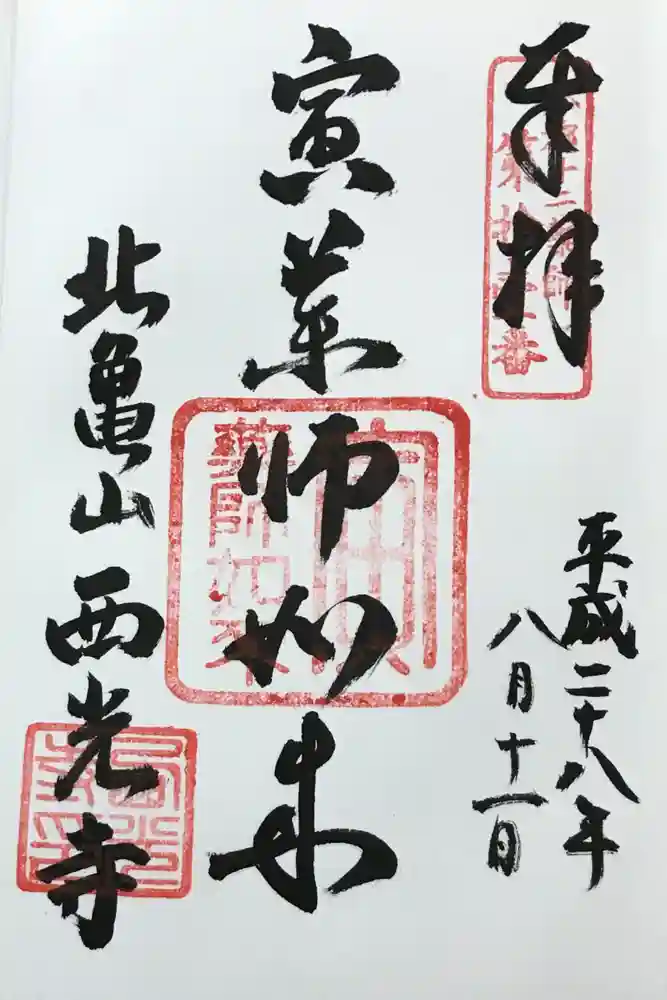 奉拝
平成二十八年
八月十一日
寅薬師如来
寅
薬師如来
北亀山西光寺